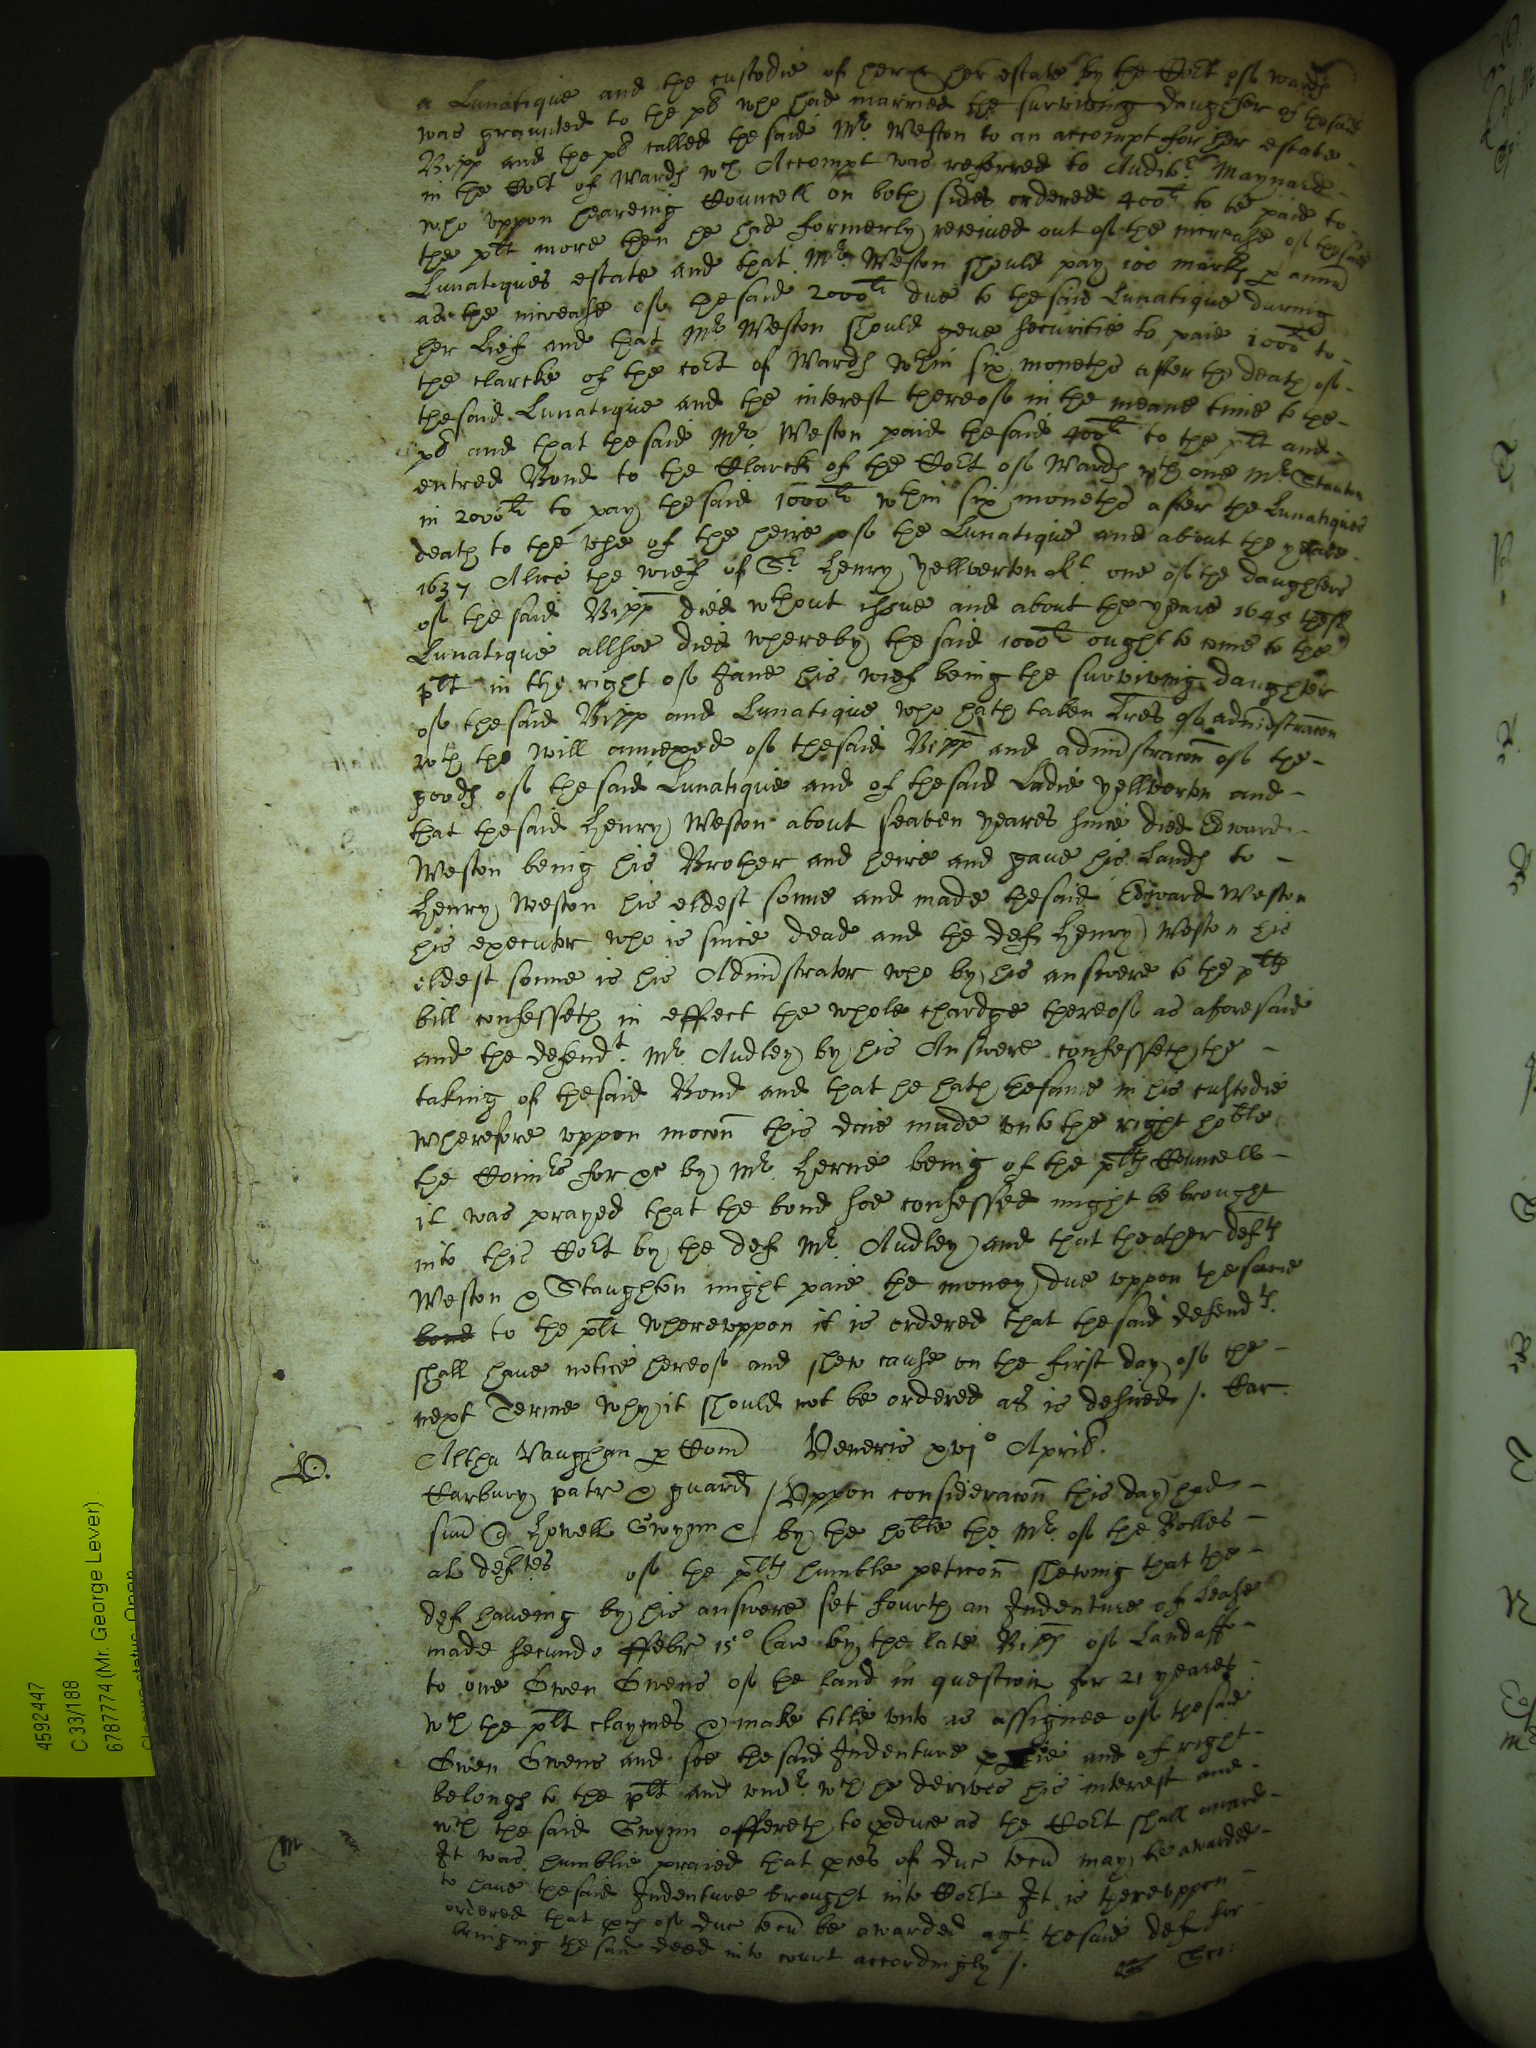 a Lunatique and the custodie of her & her estate by the Cort of ward
was graunted to the plt who had married the surviving daughter of thesaid
Bipp and the plt called thesaid Mr. Weston to an accompt for her estate
in the Cort of Wards wch Accompt was referred to Auditr Maynard
who uppon heareing Councell on both sides ordered 400li to be paid to
the plt more then he had formerly received out of the increase of thesaid
Lunatiques estate and that Mr. Weston should pay 100 marks p annu
as the increase of thesaid 2000li due to thesaid Lunatique during
her Lief and that Mr Weston should geve securitie to paie 1000li to
the clarcke of the cort of Wards wthin six moneths after the death of
thesaid Lunatique and the interest thereof in the meane time to the
plt and that thesaid Mr. Weston paid thesaid 400li to the plt and
entred Bond to the Clarck of the Cort of Wards wth one Mr Stauton
in 2000li to pay thesaid 1000li wthin six moneths after the Lunatiques
death to the use of the heire of the Lunatique and about the yeare
1637 Alice the wief of Sr. Henry Yellverton Kt. one of the daughters
of the said Bipp died wthout issue and about the yeare 1645 the
Lunatique allsoe died whereby the said 1000li ought to come to the
plt in the right of Jane his wief being the surviving daughter
of thesaid Bipp and Lunatique who hath taken Lres of administracon
wth the will annexed of thesaid Bipp and administracon of the
goods of the said Lunatique and of thesaid Ladie Yellverton and
that thesaid Henry Weston about seaven yeares since died Edward
Weston being his Brother and heire and gave his Lands to
Henry Weston his eldest sonne and made thesaid Edward Weston
his executor who is since dead and the def Henry Weston his
eldest sonne is his Administrator who by his answere to the plts
bill confesseth in effect the whole chardge thereof as aforesaid
and the defendt. Mr Audley by his Answere confesseth the
taking of thesaid Bond and that he hath thesame in his custodie
wherefore uppon mocon this daie made unto the right hoble
the Comrs for &c by Mr. Herne being of the plts Councell
it was prayed that the bond soe confessed might be brought
into this Cort by the def Mr. Audley and that the other defts
Weston & Staughton might paie the money due uppon thesame
bond to the plt whereuppon it is ordered that thesaid defendts.
shall have notice hereof and shew cause on the first day of the
next Terme why it should not be ordered as is desired /. Car.
D.
Altha Vaughan p Com
Veneris xvjo Aprilis.
Carbury patre & guard
/Uppon consideracon this day had
suu @ Howell Gwynn &
by the hoble the Mr. of the Rolles
al deftes
of the plts humble peticon shewing that the
def haveing by his answere set fourth an Indenture of Lease
made secundo ffebr 15o Car by the late Bipp of Landaffe
to one Owen Owens of the land in question for 21 yeares
wch the plt claymes & make title unto as assignee of thesaid
Owen Owens and soe thesaid Indenture and of right
belongs to the plt and undr. wch he derives his interest and
wch the said Gwynn offereth to pduce as the Cort shall award
It was humblie praied that pces of duc tecu may be awarded
to have thesaid Indenture brought into Cort It is thereuppon
ordered that pces of duc tecu be awarded agt. thesaid def for
bringing the said deed into court accordingly /.
4592447
C 33/188
6787774 (Mr. George Lever)
Closure status: Open